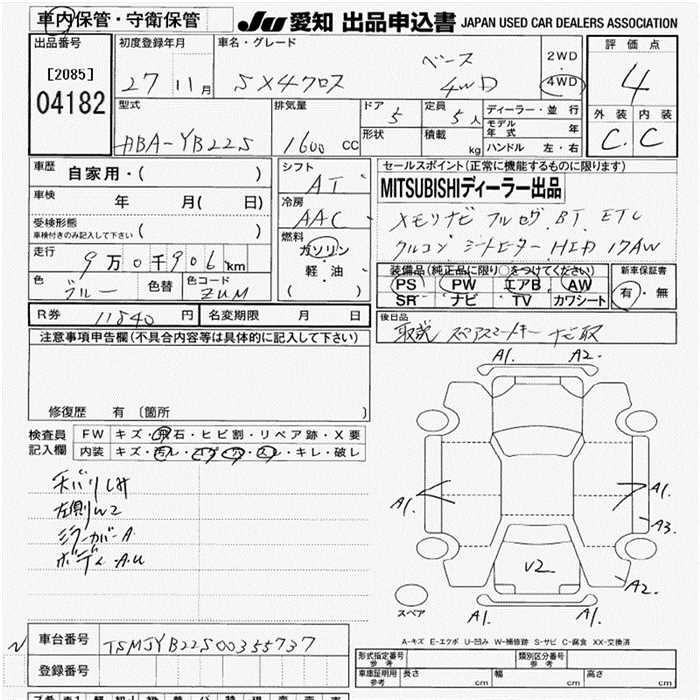 車内保管・守衛保管
JU 愛知 出品申込書 JAPAN USED CAR DEALERS ASSOCIATION
出品番号
[2085]
04182
初度登録年月
27 11月
車名・グレード
SX4クロス ベース 4WD
2WD
4WD
評価点
4
外装 内装
C. C
型式
ABA-YB22S
排気量
1600 cc
ドア 5
定員 5人
形状
積載 kg
ディーラー・並行
モデル年式 年
ハンドル 左・右
車歴 自家用・( )
車検 年 月( 日)
受検形態
車検付きのみ記入して下さい ( )
走行 9万0千906km
色 ブルー
色替
色コード ZUM
シフト
AT
冷房
AAC
燃料
ガソリン
・
軽・油
( )
セールスポイント(正常に機能するものに限ります)
MITSUBISHIディーラー出品
メモリナビ フルセグ. BT. ETC
クルコン シートヒーター HID 17AW
装備品(純正品に限り○をつけてください)
PS PW エアB AW
SR ナビ TV カワシート
新車保証書
有・無
R券 11540円
名変期限 月 日
後日品
取説 スペアスマートキー ナビ取
注意事項申告欄(不具合内容等は具体的に記入して下さい)
修復歴 有 〔箇所 )
検査員記入欄
FW キズ・飛石・ヒビ割・リペア跡・X要
内装 キズ・汚レ・コゲ・穴・スレ・キレ・破レ
左側W2
ミラーカバーA
ボディ.A.U
A1. A2.
A1.
A1.
A3.
V2
A2
A1. A1.
スペア
A-キズ E-エクボ U-凹み W-補修跡 S-サビ C-腐食 XX-交換済
車台番号 TSMJYB22S00355737
登録番号
型式指定番号 参考
類別区分番号 参考
車庫証明用 参考
長さ cm
幅 cm
高さ cm